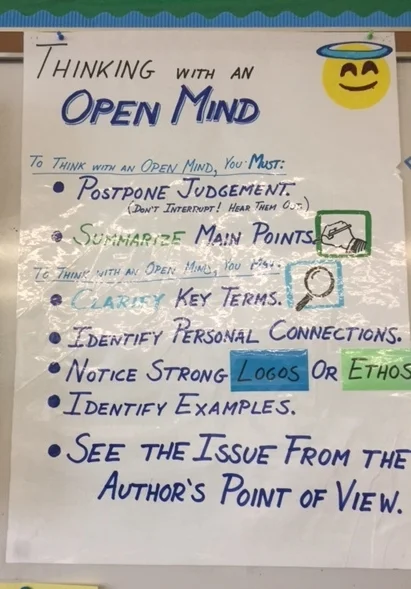 THINKING WITH AN
OPEN MIND
TO THINK WITH AN OPEN MIND, YOU MUST:
• POSTPONE JUDGEMENT.
(DON'T INTERRUPT! HEAR THEM OUT.)
• SUMMARIZE MAIN POINTS.
TO THINK WITH AN OPEN MIND, YOU MAY:
• CLARIFY KEY TERMS.
• IDENTIFY PERSONAL CONNECTIONS.
• NOTICE STRONG LOGOS OR ETHOS
• IDENTIFY EXAMPLES.
• SEE THE ISSUE FROM THE
AUTHOR'S POINT OF VIEW.